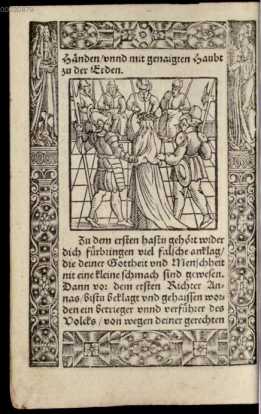 Händen/vnnd mit genaigten Haubt
zu der Erden.
Zu dem ersten hastu gehört wider
dich fürbringen viel falsche anklag/
die deiner Gottheit vnd Menschheit
nit eine kleine schmach sind gewesen.
Dann vor dem ersten Richter An-
nas/bistu beklagt vnd gehaissen wor-
den ein betrieger vnnd verführer des
Volcks/von wegen deiner gerechten